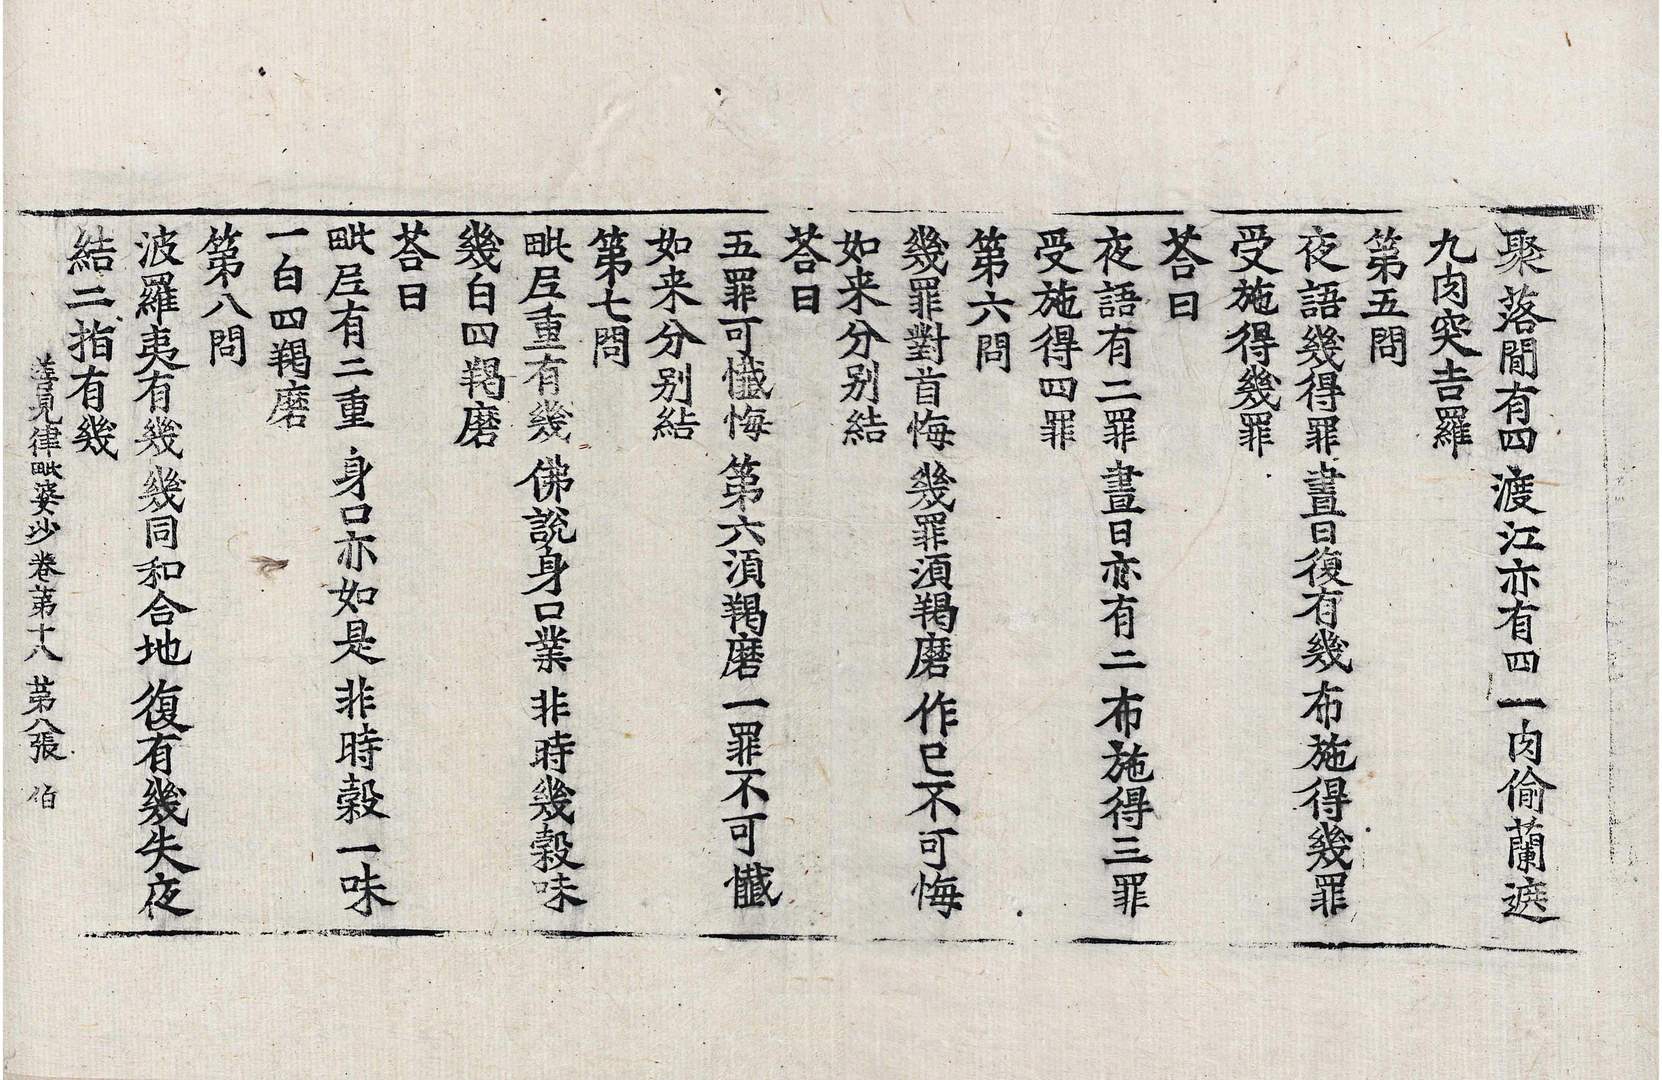 聚落間有四 渡江亦有四 一肉偷蘭遮
九肉突吉羅
第五問
夜語幾得罪 晝日復有幾 布施得幾罪
受施得幾罪
荅曰
夜語有二罪 晝日亦有二 布施得三罪
受施得四罪
第六問
幾罪對首悔 幾罪湏羯磨 作已不可悔
如来分别結
荅曰
五罪可懺悔 第六湏羯磨 一罪不可懺
如来分别結
第七問
毗尼重有幾 佛說身口業 非時幾糓味
幾白四羯磨
荅曰
毗尼有二重 身口亦如是 非時糓一味
一白四羯磨
第八問
波羅夷有幾 幾同和合地 復有幾失夜
結二指有幾
善見律毗婆沙卷第十八 第八張 伯